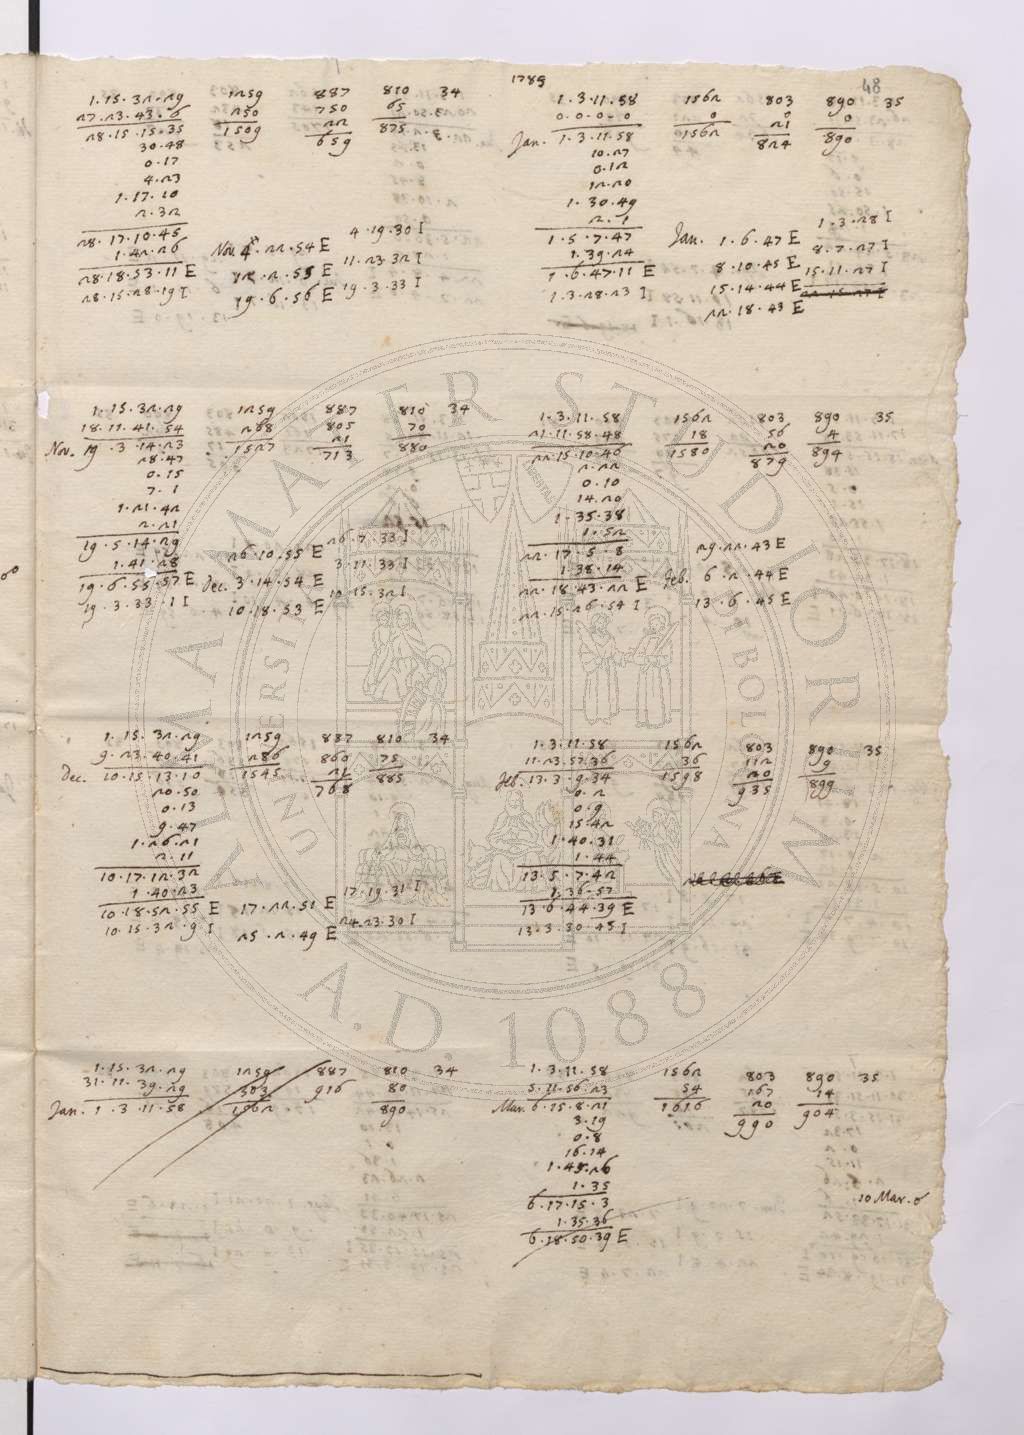 1789
48
1.15.32.29 1259 887 810 34
27.23.43.6 250 750 65
28.15.15.35 1509 22 875
30.48 659
0.17
4.23
1.17.10
2.32
28.17.10.45
1.42.26
28.18.53.11 E
28.15.28.19 I
Nov. 4.22.54 E 4.19.30 I
12.2.55 E 11.23.32 I
19.6.56 E 19.3.33 I
1.3.11.58 1562 803 890 35
0.0.0.0 0 0 0
Jan. 1.3.11.58 1562 21 890
10.27 824
0.12
12.20
1.30.49
2.1
1.5.7.47
1.39.24
1.6.47.11 E
1.3.28.23 I
Jan. 1.6.47 E 1.3.28 I
8.10.45 E 8.7.27 I
15.14.44 E 15.11.27 I
22.18.43 E
1.15.32.29 1259 887 810 34
18.11.41.54 268 805 70
Nov. 19.3.14.23 1527 21 880
28.47 713
0.15
7.1
1.21.42
2.21
19.5.14.29
1.41.28
19.6.55.57 E
19.3.33.1 I
26.10.55 E 26.7.33 I
Dec. 3.14.54 E 3.11.33 I
10.18.53 E 10.15.32 I
1.3.11.58 1562 803 890 35
21.11.58.48 18 56 4
22.15.10.46 1580 20 894
2.22 879
0.10
14.20
1.35.38
1.52
22.17.5.8
1.38.14
22.18.43.22 E
22.15.26.54 I
29.22.43 E
Feb. 6.2.44 E
13.6.45 E
1.15.32.29 1259 887 810 34
9.23.40.41 286 860 75
Dec. 10.15.13.10 1545 21 885
20.50 768
0.13
9.47
1.26.21
2.11
10.17.12.32
1.40.23
10.18.52.55 E
10.15.32.9 I
17.22.51 E 17.19.31 I
25.2.49 E 24.23.30 I
1.3.11.58 1562 803 890 35
11.23.57.36 36 112 9
Feb. 13.3.9.34 1598 20 899
0.2 935
0.9
15.42
1.40.31
1.44
13.5.7.42
1.36.57
13.6.44.39 E
13.3.30.45 I
1.15.32.29 1259 887 810 34
31.11.39.29 303 916 80
Jan. 1.3.11.58 1562 890
1.3.11.58 1562 803 890 35
5.11.56.23 54 167 14
Mar. 6.15.8.21 1616 20 904
3.19 990
0.8
16.14
1.45.26
1.35
6.17.15.3
1.35.36
6.18.50.39 E
10 Mar. 6
ALMA MATER STUDIORUM
UNIVERSITÀ DI BOLOGNA
A.D. 1088